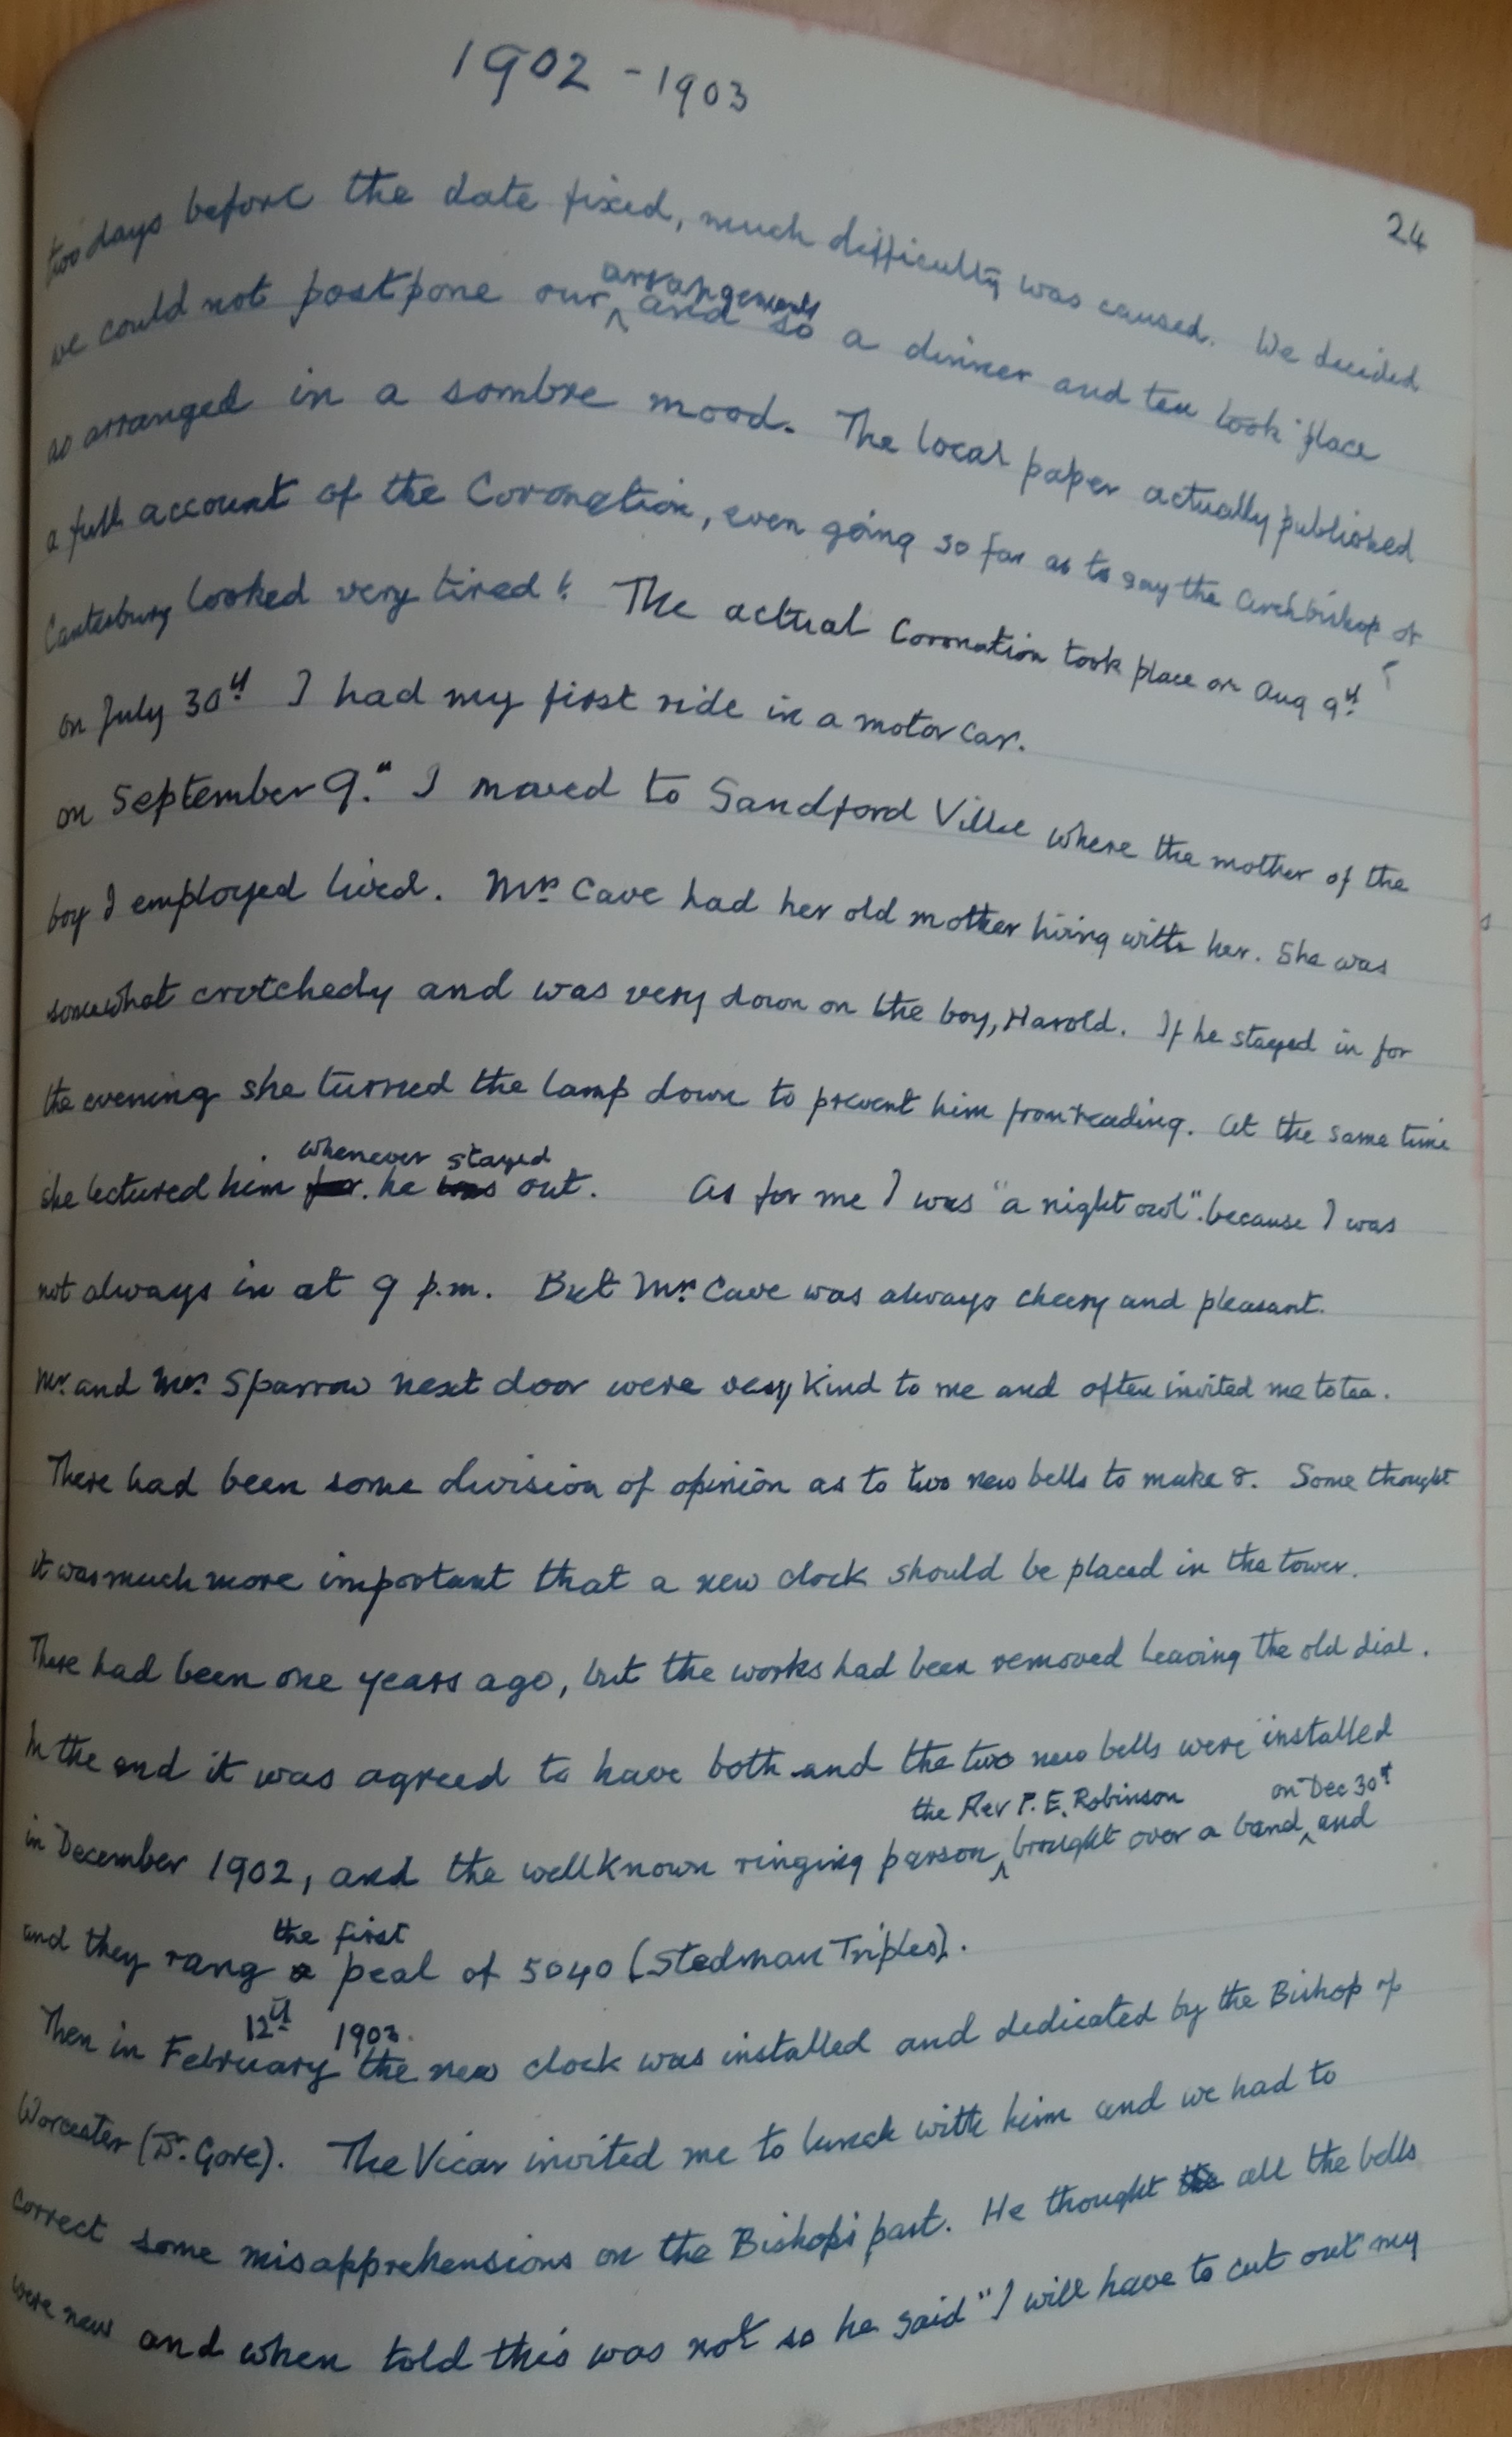 1902 - 1903
24
two days before the date fixed, much difficulty was caused. We decided
we could not postpone our arrangements and so a dinner and tea took place
as arranged in a sombre mood. The local paper actually published
a full account of the Coronation, even going so far as to say the Archbishop of
Canterbury looked very tired! The actual Coronation took place on Aug 9th
on July 30th I had my first ride in a motor car.
on September 9th I moved to Sandford Villa where the mother of the
boy I employed lived. Mrs. Cave had her old mother living with her. She was
somewhat crotchedy and was very down on the boy, Harold. If he stayed in for
the evening she turned the lamp down to prevent him from reading. At the same time
whenever stayed
she lectured him for he was out. As for me I was "a night owl" because I was
not always in at 9 p.m. But Mrs. Cave was always cheery and pleasant.
Mr. and Mrs. Sparrow next door were very kind to me and often invited me to tea.
There had been some division of opinion as to two new bells to make 8. Some thought
it was much more important that a new clock should be placed in the tower.
There had been one years ago, but the works had been removed leaving the old dial.
In the end it was agreed to have both and the two new bells were installed
the Rev F. E. Robinson on Dec 30th
in December 1902, and the wellknown ringing parson brought over a band and
the first
and they rang a peal of 5040 (Stedman Triples).
12th 1903.
Then in February the new clock was installed and dedicated by the Bishop of
Worcester (Dr. Gore). The Vicar invited me to lunch with him and we had to
correct some misapprehensions on the Bishop's part. He thought the all the bells
were new and when told this was not so he said "I will have to cut out my